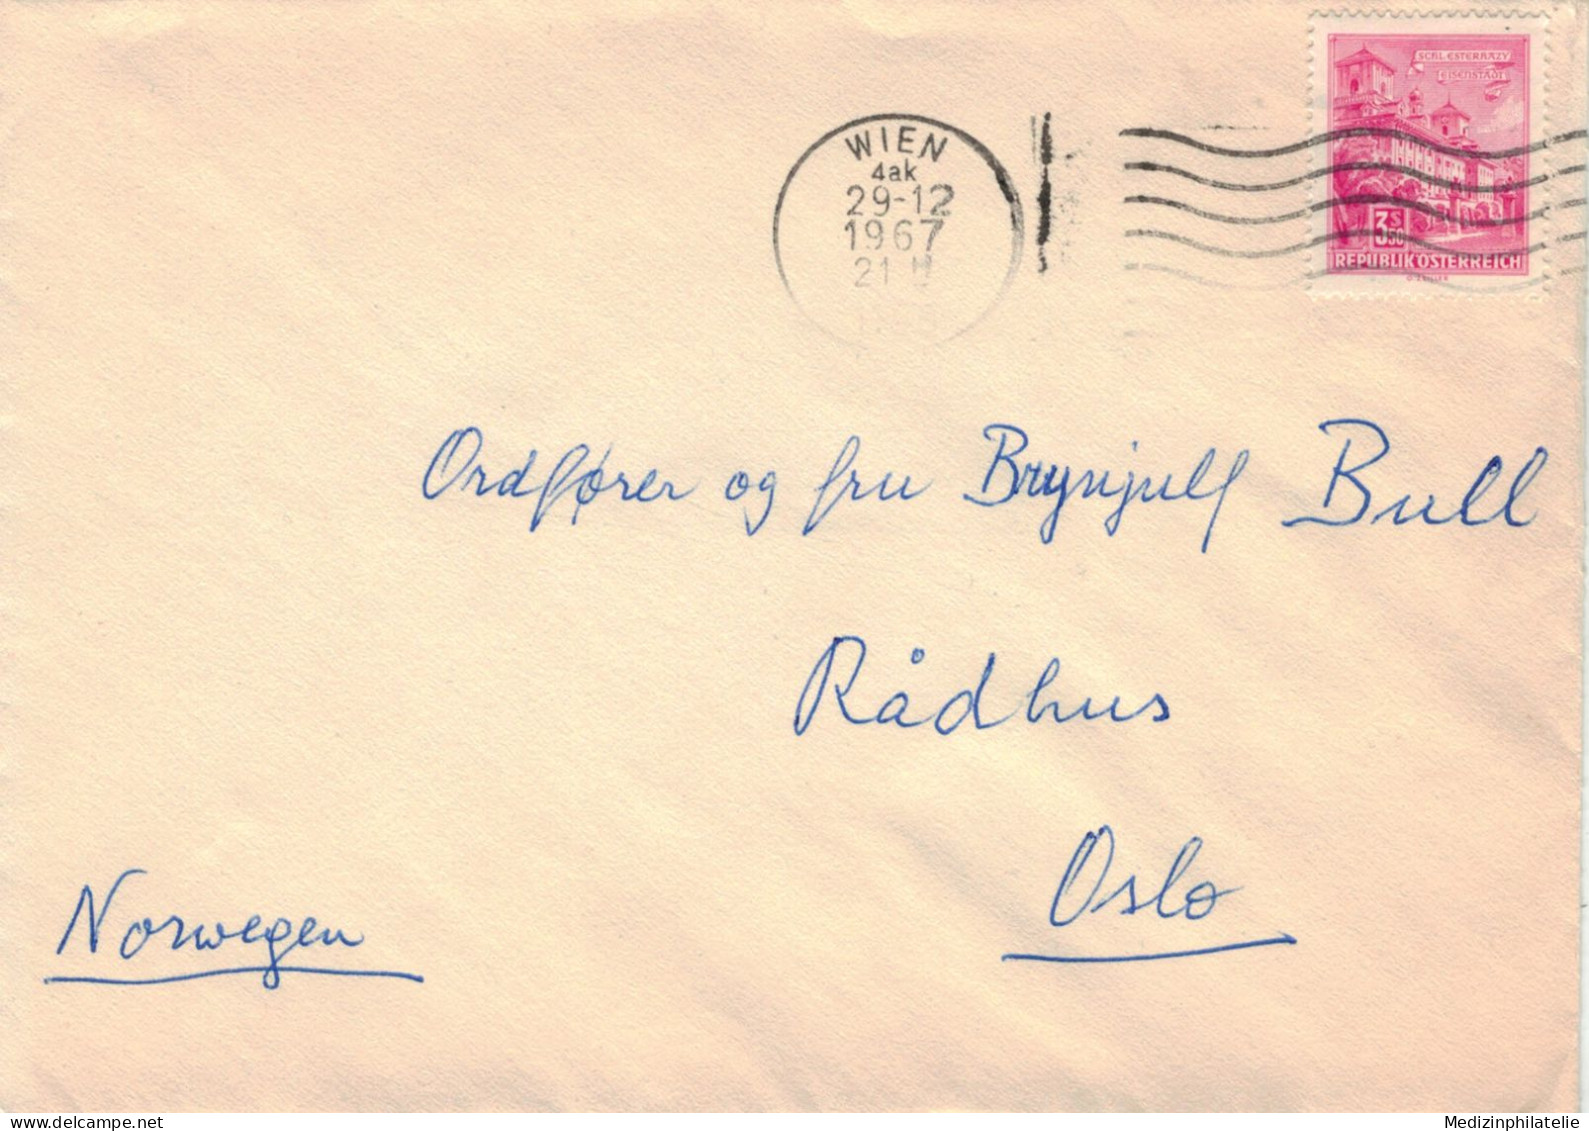 SCHL. ESTERHÁZY
EISENSTADT
3 S 50
REPUBLIK ÖSTERREICH
WIEN
4ak
29-12
1967
21
Ordfører og fru Brynjulf Bull
Rådhus
Oslo
Norwegen
www.delcampe.net
Medizinphilatelie